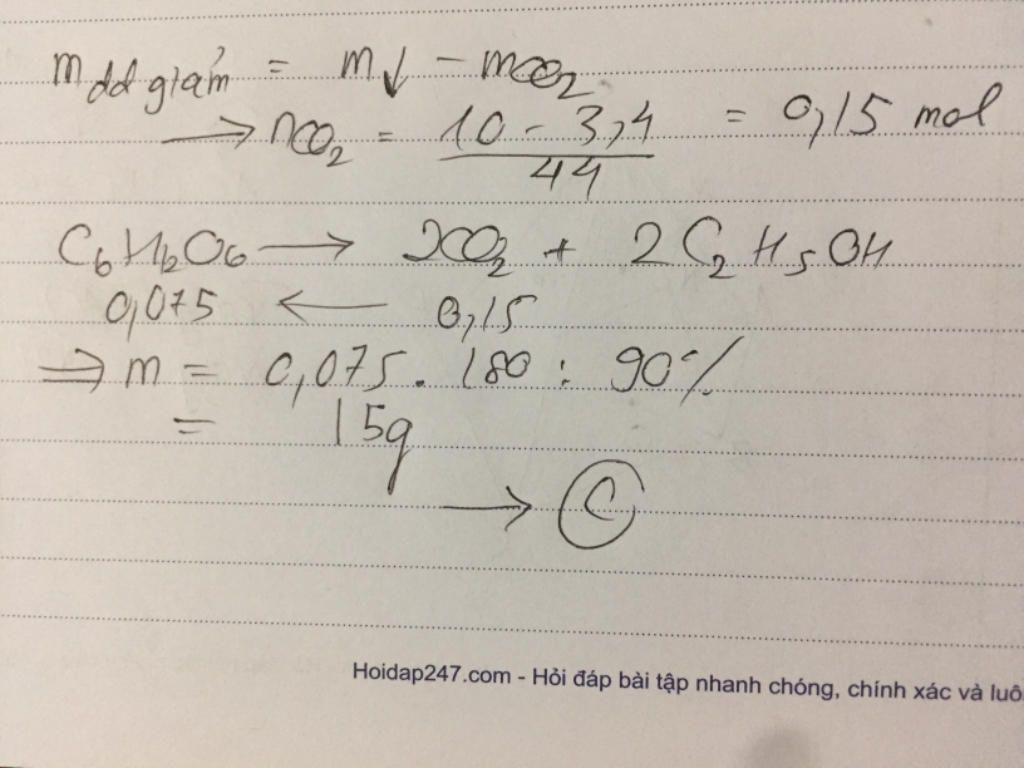 m dd giảm = m↓ - mCO2
→ nCO2 = 10 - 3,4 / 44 = 0,15 mol
C6H12O6 → 2CO2 + 2C2H5OH
0,075 ← 0,15
⇒ m = 0,075 . 180 : 90%
= 15g
→ C
Hoidap247.com - Hỏi đáp bài tập nhanh chóng, chính xác và luô